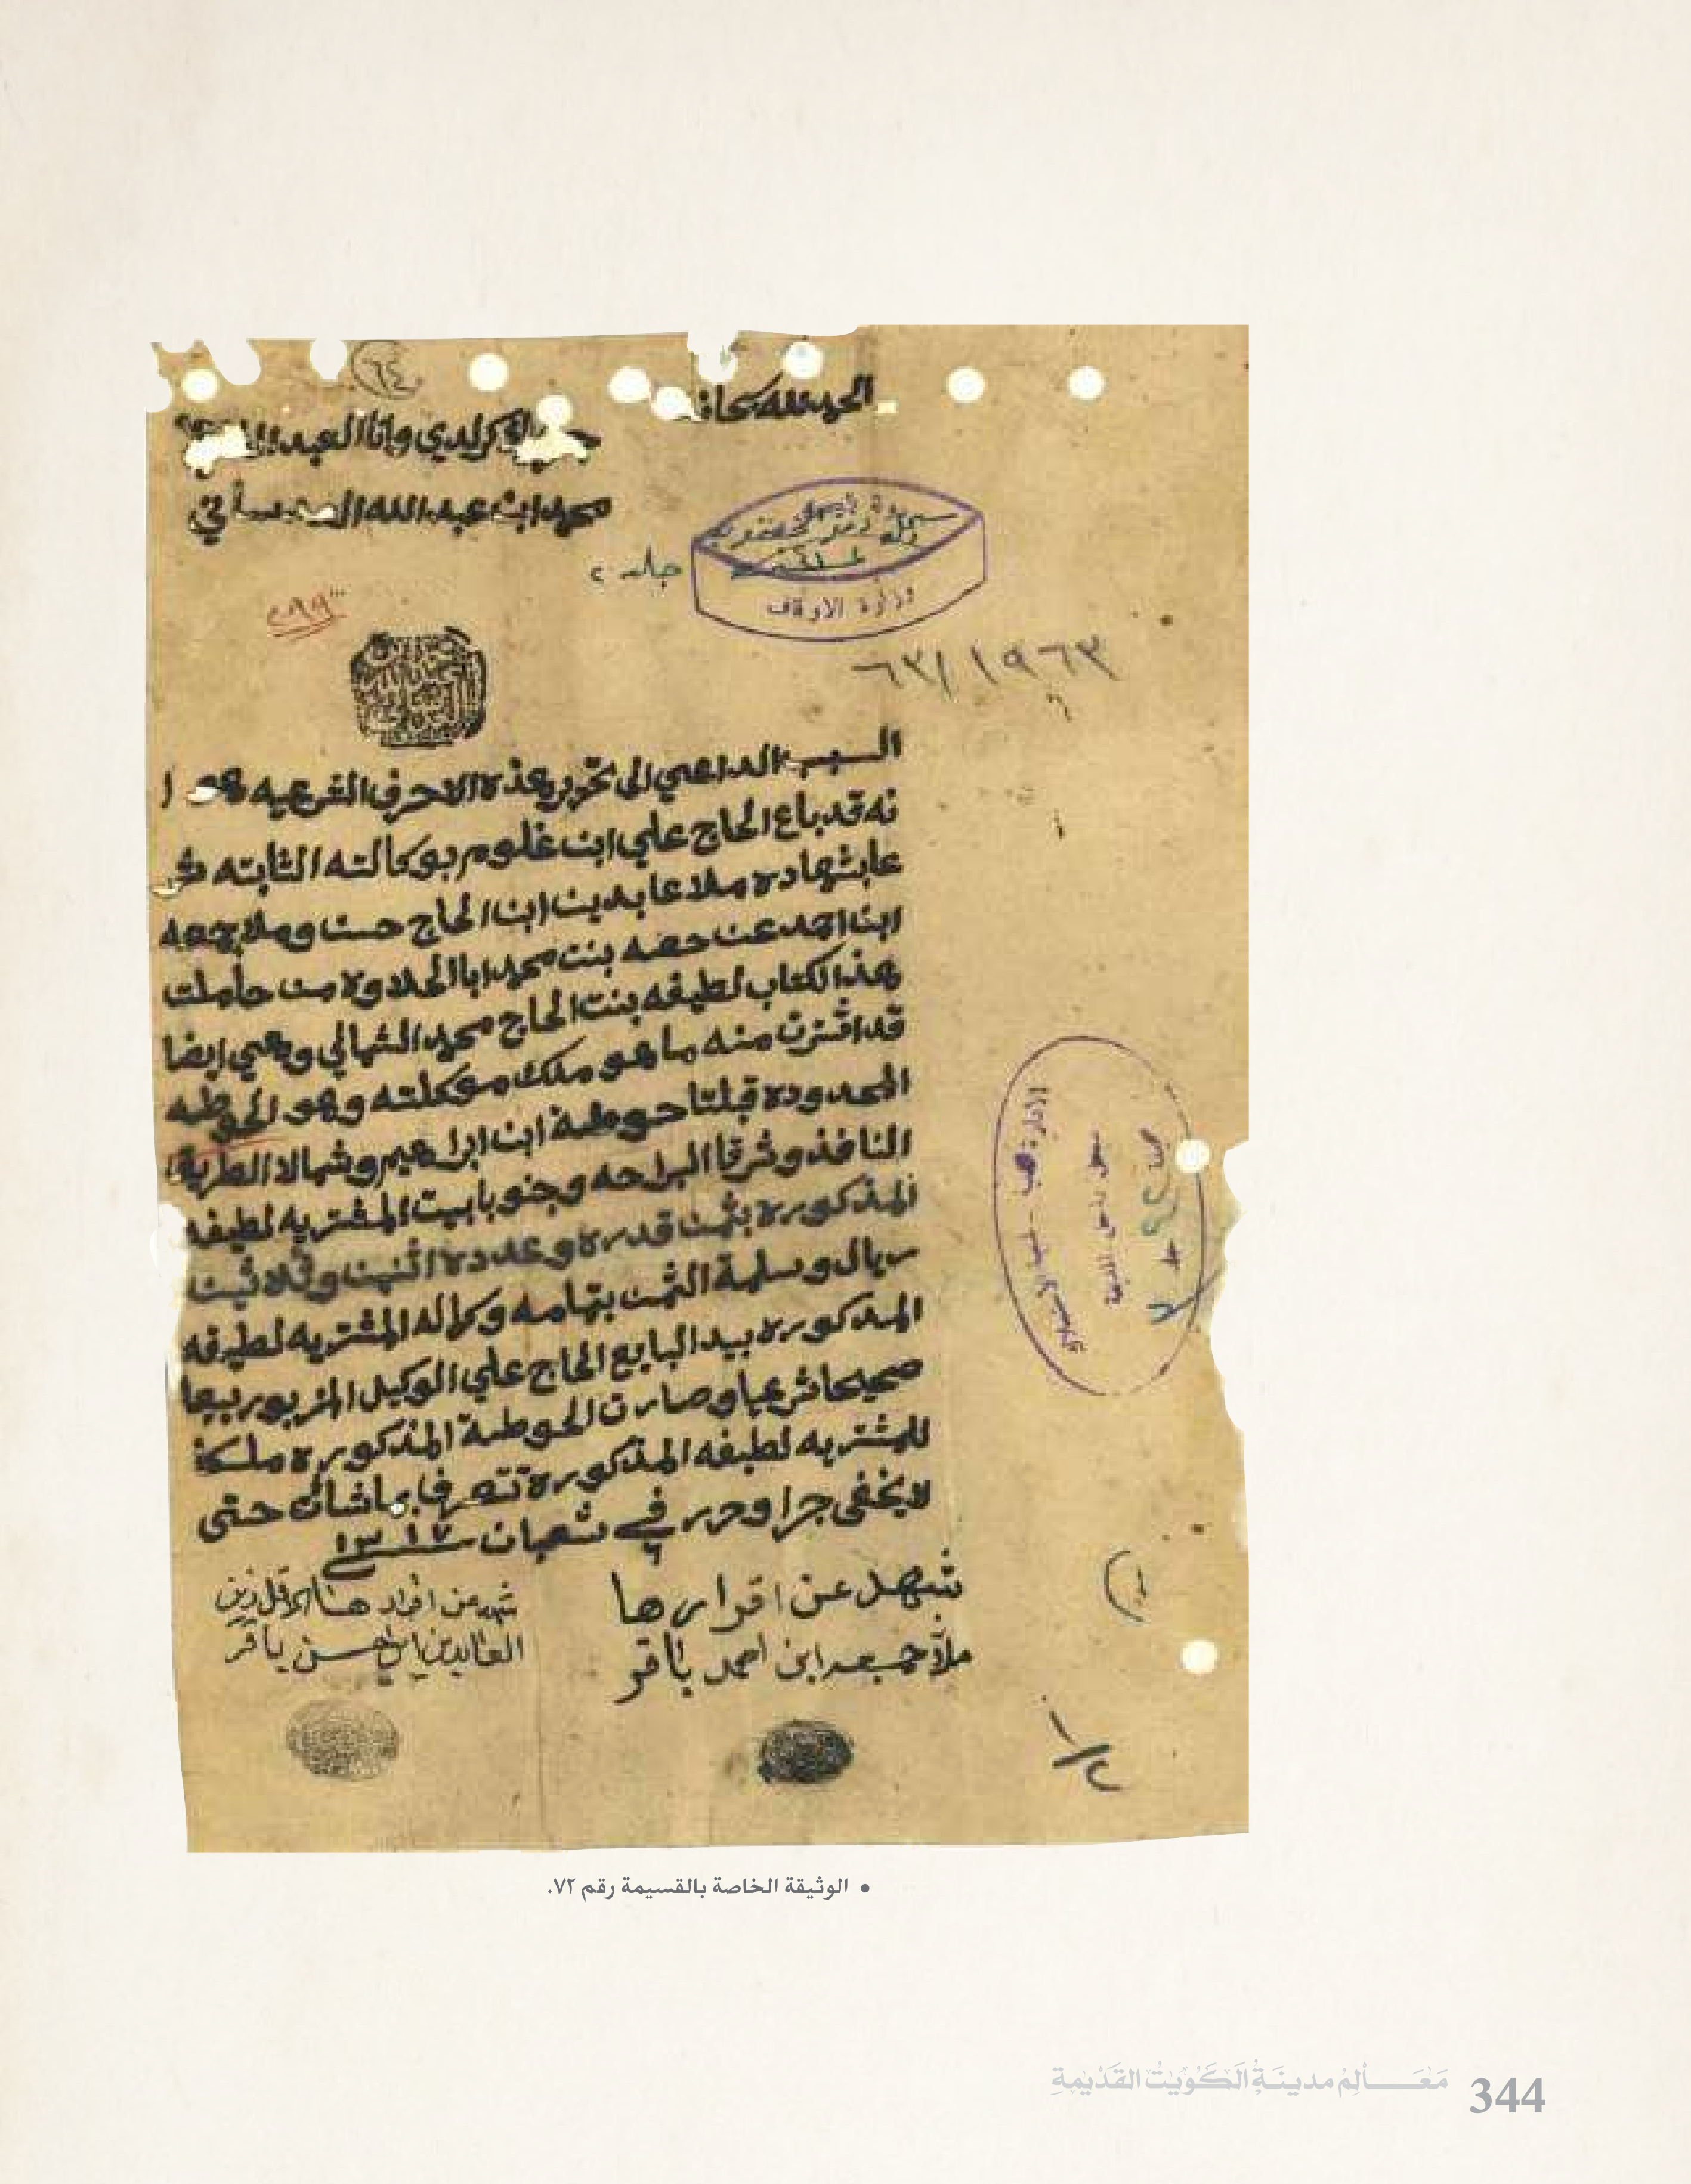 ٦٤
الحمد لله سبحانه
جرى لدي وانا العبد
محمد ابن عبد الله العدساني
جلسه ٢
وزارة الاوقاف
٢٩٩
٦٣/١٩٦٣
السبب الداعي الى تحرير هذه الاحرف الشرعيه هو ا
نه قد باع الحاج علي ابن غلوم بوكالته الثابته شر
عا بشهادة ملا عابدين ابن الحاج حسن وملا جمعه
ابن احمد عن حصه بنت محمد ابا الحلا ولا من حاملت
هذا الكتاب لطيفه بنت الحاج محمد الشمالي وهي ايضا
قد اشترت منه ما هو ملك موكلته وهو الحوطه
المحدوده قبلتا حوطة ابن ابراهيم وشمالا الطريق
النافذ وشرقا البراحه وجنوبا بيت المشتريه لطيفه
المذكوره بثمن قدره وعدده اثنين وثلاثين
ريال وسلمة الثمن بتمامه وكماله المشتريه لطيفه
المذكوره بيد البايع الحاج علي الوكيل المزبور بيعا
صحيحا شرعيا وصارت الحوطة المذكوره ملكا
للمشتريه لطيفه المذكورة تتصرف بها شائت حتى
لا يخفى جرا وحرر في ٦ شعبان سنة ١٣١٧
شهد عن اقرارها
ملا جمعه ابن احمد باقر
شهد عن اقرار هنا الاقل زين
العابدين ابن حسن باقر
سجل داخل المدينة
١/٢
• الوثيقة الخاصة بالقسيمة رقم ٧٢.
مَعَالِمُ مدينَةِ الكُوَيْتِ القَدْيمَةِ
344